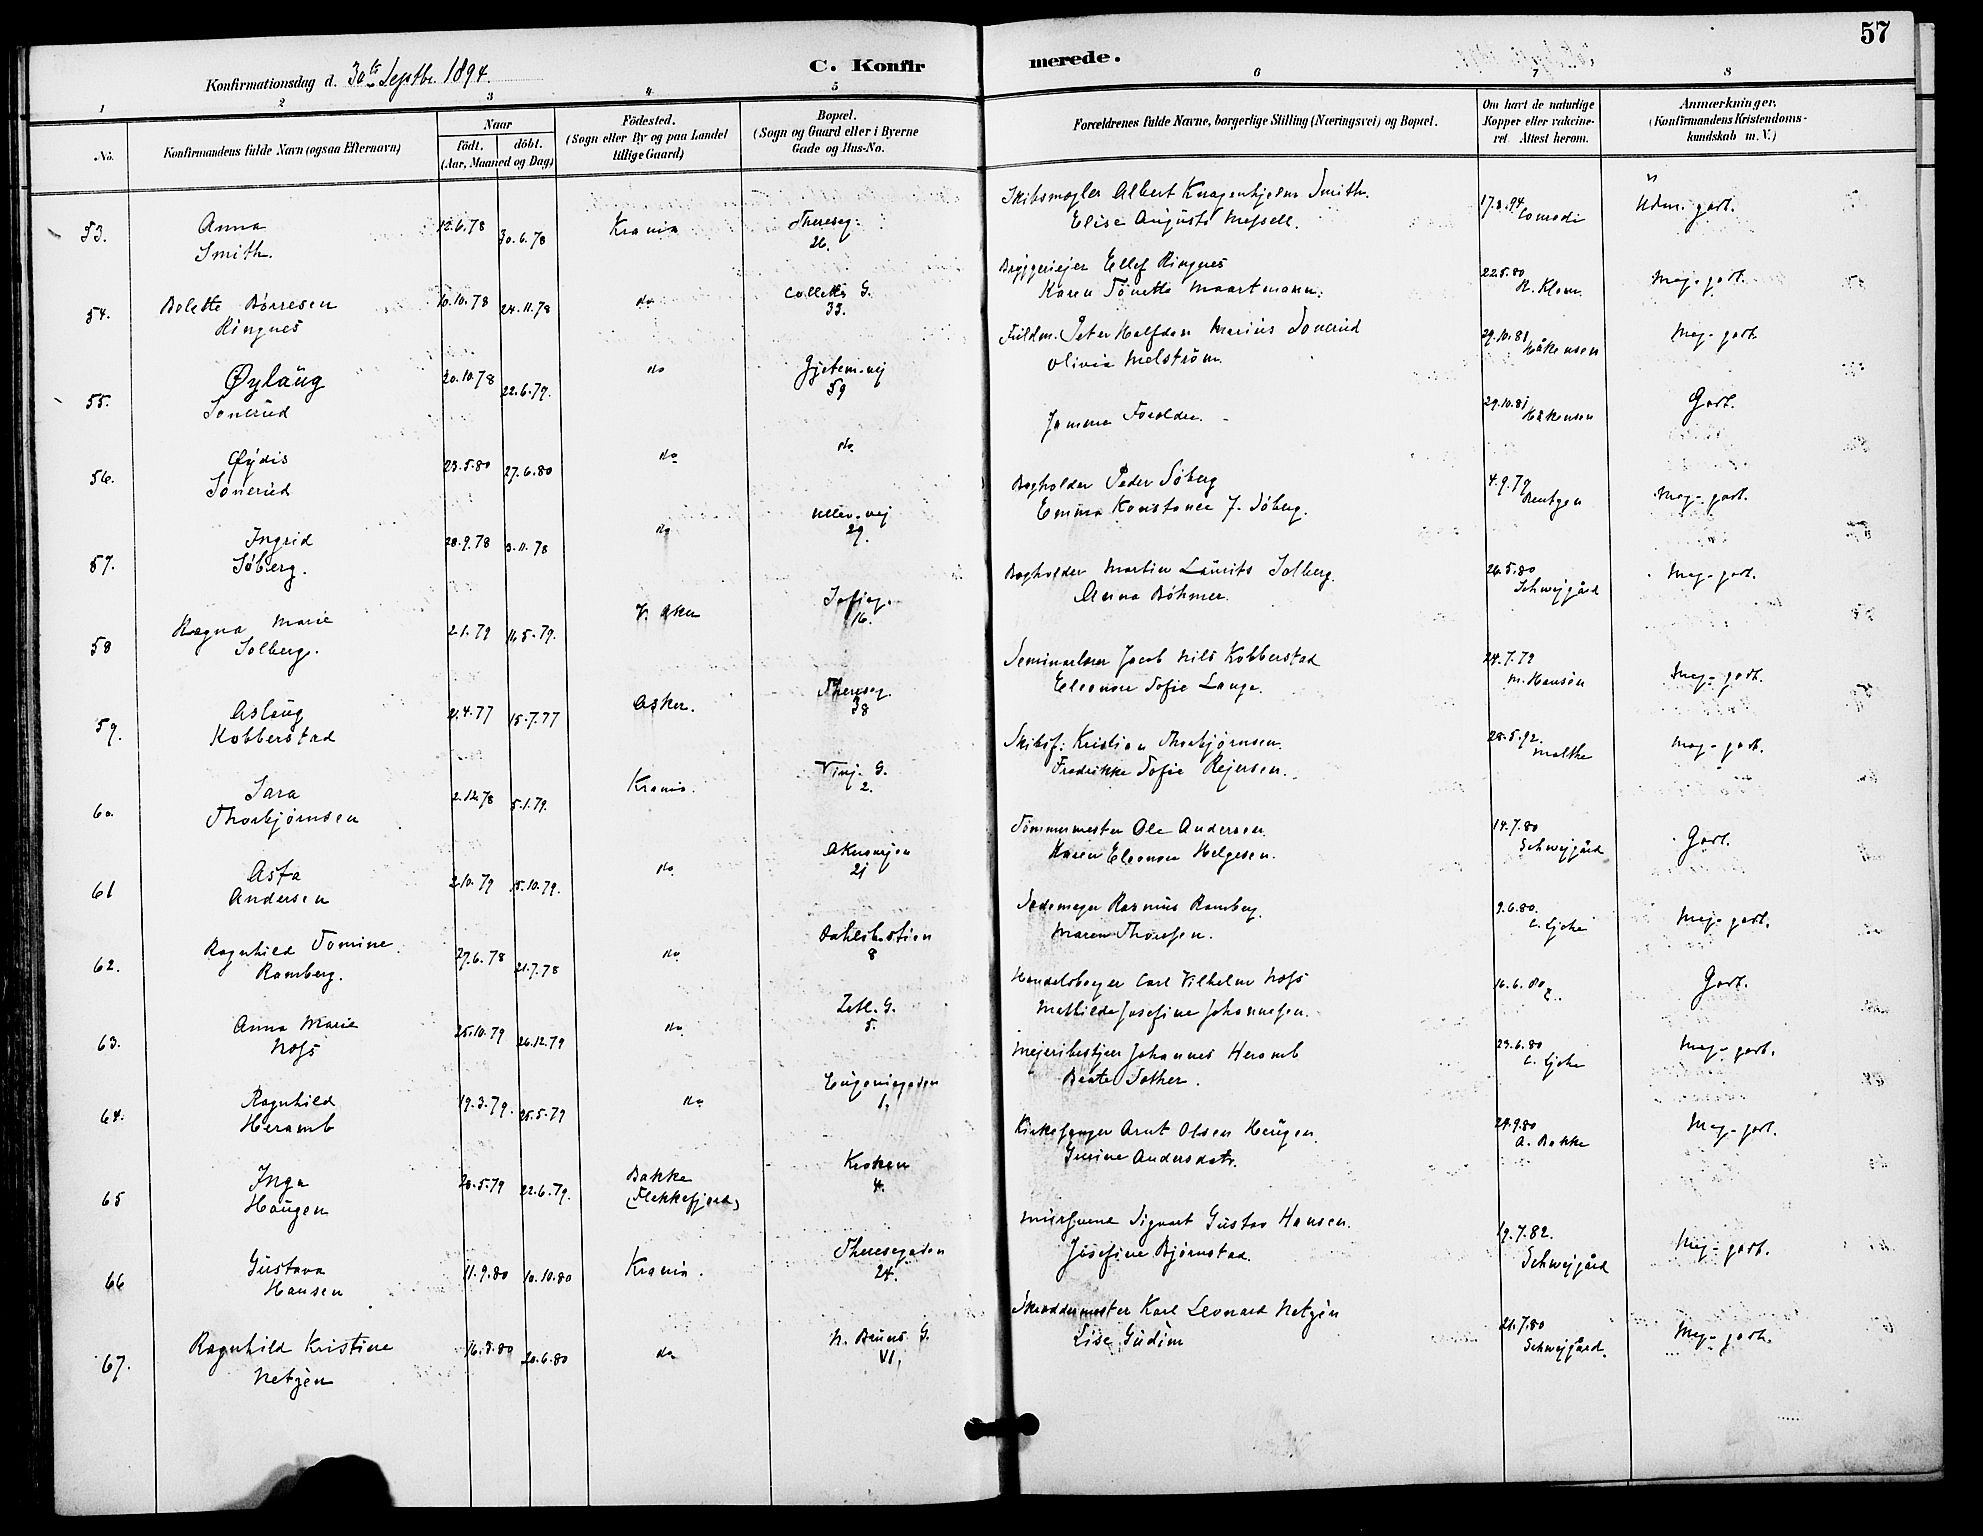 57
Konfirmationsdag d. 30te Septbr. 1894.
C. Konfirmerede.
1 2 3 4 5 6 7 8
No.
Konfirmandens fulde Navn (ogsaa Efternavn)
Naar
født. døbt.
(Aar, Maaned og Dag)
Fødested.
(Sogn eller By og paa Landet
tillige Gaard)
Bopæl.
(Sogn og Gaard eller i Byerne
Gade og Hus-No.
Forældrenes fulde Navne, borgerlige Stilling (Næringsvei) og Bopæl.
Om havt de naturlige
Kopper eller vakcine-
ret Attest herom.
Anmærkninger.
(Konfirmandens Kristendoms-
kundskab m. V.)
53. Anna Smith. 12.6.78 30.6.78 Krania Thereseg. 26. Skibsmægler Albert Smith. Elise Augusta 17.8.94 Udm. godt.
54. Bolette Børresen Ringnes 10.10.78 24.11.78 do Colletts G. 33. Bryggeriejer Ellef Ringnes Karen Tonette Maartmann. 22.5.80 Meg. godt.
55. Øylaug Sonerud 20.10.78 22.6.79. do Gjetem.vej 59 Fuldm. Peter Halfdan Marius Sonerud Olivia Melstrøm. 29.10.81 Håkensen Meg. godt.
56. Øydis Sonerud 23.5.80 27.6.80 do do Samme Forældre. 29.10.81 Håkensen Godt.
57. Ingrid Søberg. 28.9.78 3.11.78 do Ullev. vej 29. Bogholder Peder Søberg Emma Konstance J. Søberg. 4.9.79 Bentzen Meg. godt.
58 Ragna Marie Solberg. 2.1.79 16.5.79. V. Aker Sofieg. 16. Bogholder Martin Laurits Solberg. Anna Bøhmer. 26.5.80 Schwejgård Meg. godt.
59. Aslaug Kobberstad 21.4.77 15.7.77 Asker. Thereseg. 38 Seminarlærer Jacob Nils Kobberstad Eleonore Sofie Lange. 24.7.79 M. Hansén Meg. godt.
60. Sara Thorbjørnsen 2.12.78 5.1.79. Krania. Vinj. G. 2. Skibsf: Kristian Thorbjørnsen. Fredrikke Sofie Rejersen. 28.5.92. Malthe Meg. godt.
61 Asta Andersen 2.10.79 15.10.79. do Akersvejen 21 Tømmermester Ole Andersen. Karen Eleonore Helgesen. 14.7.80 Schwejgård Godt.
62. Ragnhild Tomine Ramberg. 27.6.78 21.7.78 do 8 Rasmus Ramberg. Maren Thoresen. 9.6.80. Meg. godt.
63. Anna Marie 25.10.79 26.12.79 do Zetl. G. 5. Carl Vilhelm Mathilde Josefine Johannesen. 16.6.80 Godt.
64. Ragnhild Heramb 19.3.79. 25.5.79 do Eugeniegaden 1. Mejeribestyrer Johannes Heramb Beate Sother. 23.6.80 Meg. godt.
65 Inga Haugen 28.5.79 22.6.79. Bakke (Flekkefjord) Kroken 4. Kirkesanger Arnt Olsen Haugen. Gurine Andersdatr. 24.9.80 A. Bakke Meg. godt.
66 Gustava Hansen 11.9.80 10.10.80 Krania. Theresegaden 24. Mursvend Sigvart Gustav Hansen. Josefine Bjørnstad. 19.7.82. Schwejgård Meg. godt.
67. Ragnhild Kristine Netzén 16.5.80 20.6.80 do N. Bruns G. VI. Skræddermester Karl Leonard Netzén Lise Gudim 21.7.80 Schwejgård. Meg. godt.